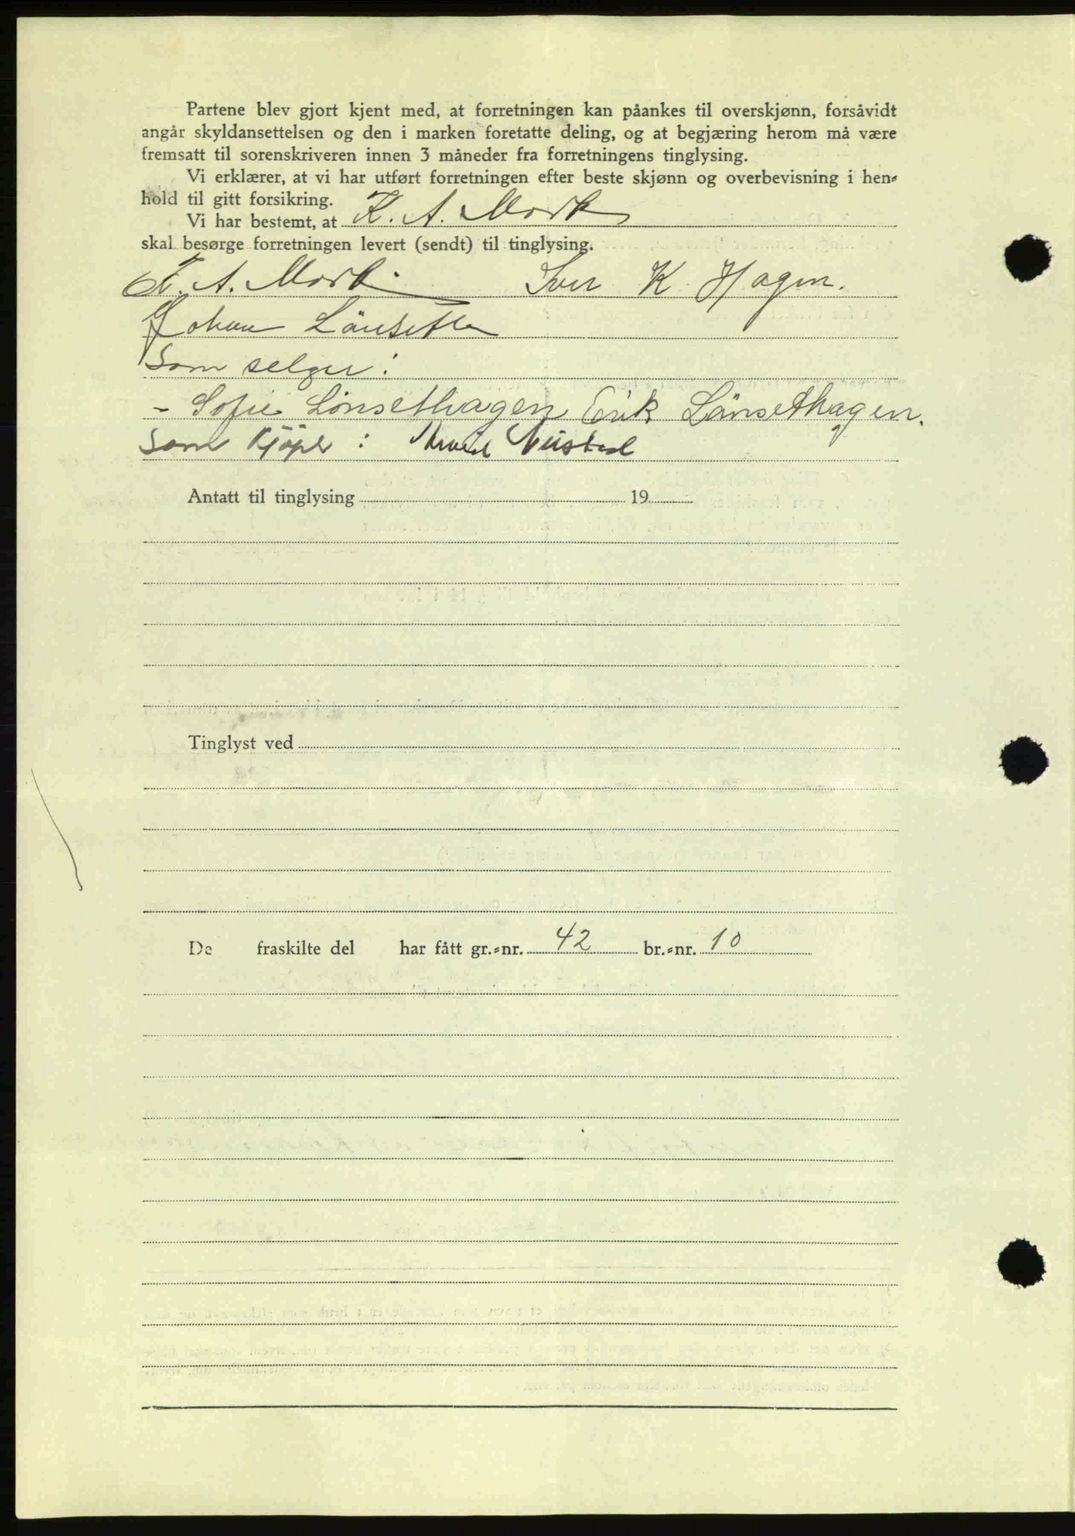 Partene blev gjort kjent med, at forretningen kan påankes til overskjønn, forsåvidt
angår skyldansettelsen og den i marken foretatte deling, og at begjæring herom må være
fremsatt til sorenskriveren innen 3 måneder fra forretningens tinglysing.
Vi erklærer, at vi har utført forretningen efter beste skjønn og overbevisning i hen-
hold til gitt forsikring.
Vi har bestemt, at K. A. Mork
skal besørge forretningen levert (sendt) til tinglysing.
K. A. Mork. Iver K Hagen.
Johan Lönset
Som selger:
- Sofie Lönsethagen Erik Lånsethagen.
Som kjöper: Neistad
Antatt til tinglysing 19
Tinglyst ved
De fraskilte del har fått gr.-nr. 42 br.-nr. 10